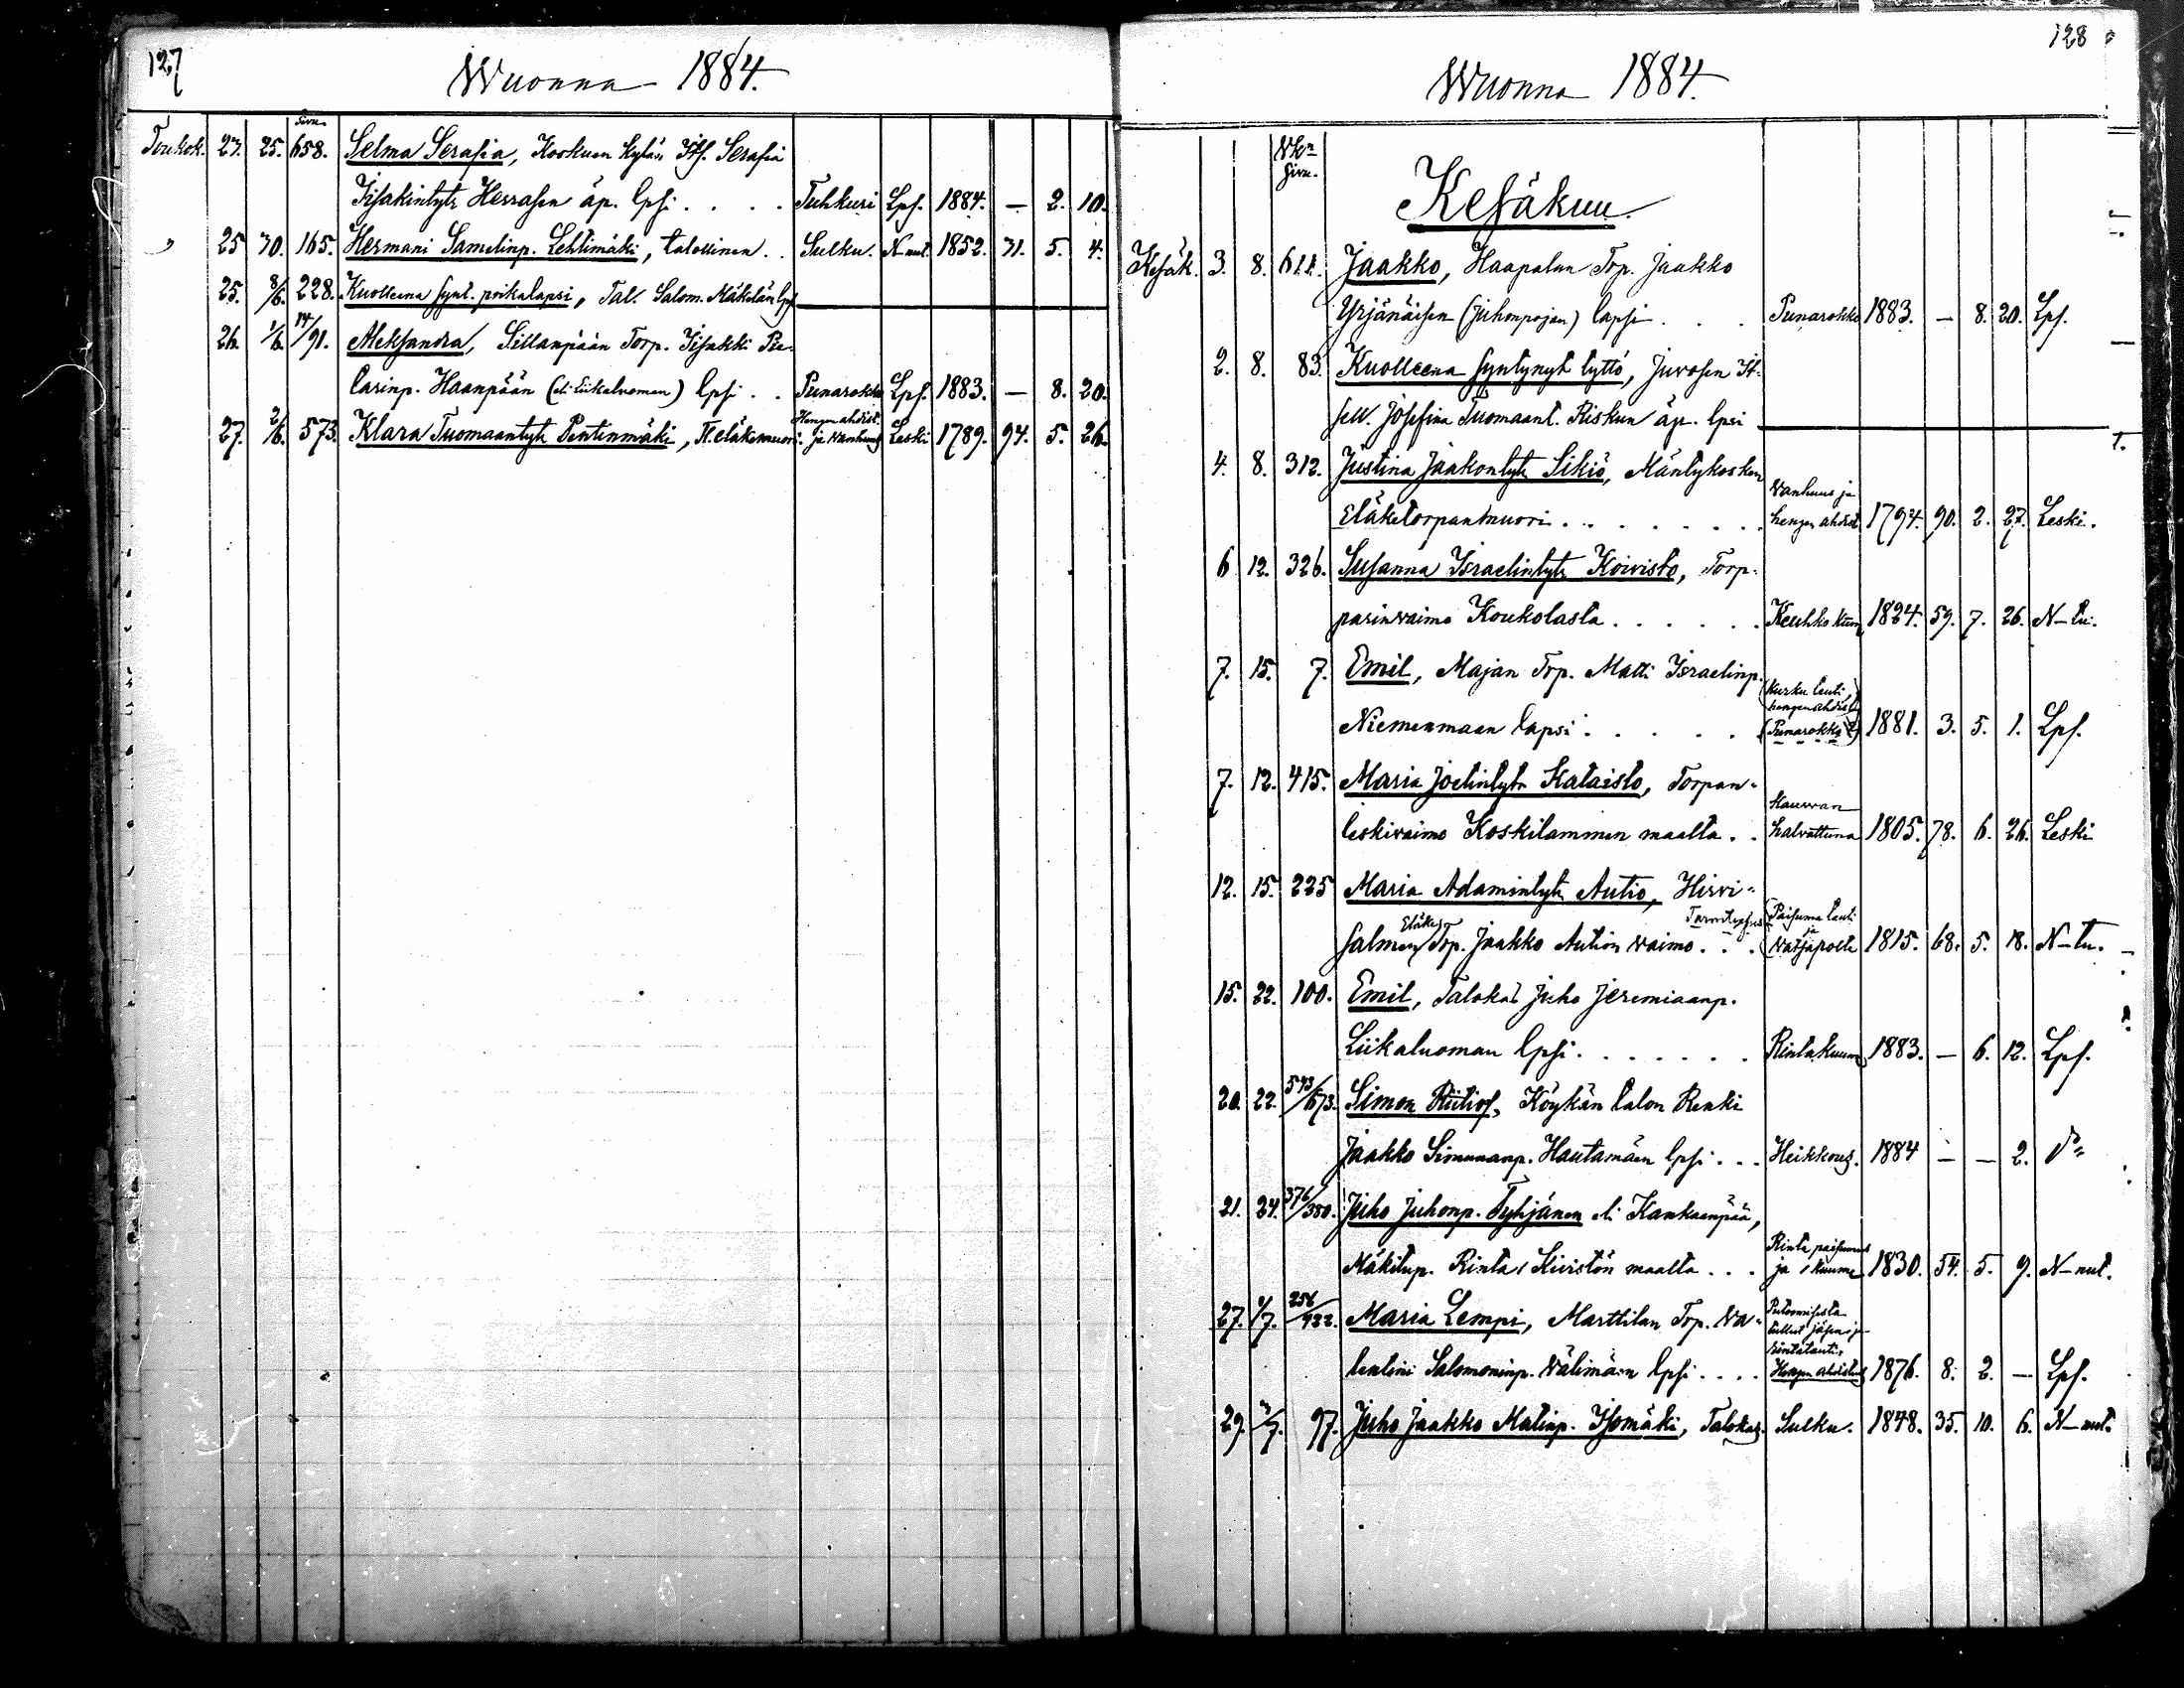 127
Wuonna 1884.
Sivu
Toukok. 23. 25. 658. Selma Serafia, Koskuen kylän Itf. Serafia
Iisakintytr Herrasen äp. lpsi . . . . Tuhkuri Lps. 1884. — 2. 10.
25 30. 165. Hermani Samelinp. Lehtimäki, talollinen . . Sulku. N-nut. 1852. 31. 5. 4.
25. 8/6. 228. Kuolleena synt. poikalapsi, Tal. Salom. Mäkelän lps
26. 1/6. 14/91. Aleksandra, Sillanpään Torp. Iisakki
larinp. Haanpään (eli Liikaluoman) lpsi . . Punarokko Lps. 1883. — 8. 20.
Hengenahdist.
27. 2/6. 573. Klara Tuomaantytr Pentinmäki, Tl. eläkemuori. ja vanhuus Leski 1789. 94. 5. 26.
128
Wuonna 1884.
Sivu.
Kesäkuu.
Kesäk. 3. 8. 611. Jaakko, Haapalan Trp. Jaakko
Yrjänäisen (Juhonpojan) lapsi . . . Punarokko 1883. — 8. 20. Lps.
2. 8. 83. Kuolleena syntynyt tyttö, Juvosen It-
sell. Josefina Tuomaant. Riskun äp. lpsi
4. 8. 312. Justina Jaakontytr Sikiö, Mäntykosken
Vanhuus ja
Eläketorpanmuori . . . . . . . . hengen ahdist 1794. 90. 2. 27. Leski.
6 12. 326. Susanna Israelintytr Koivisto, Torp-
parinvaimo Koukolasta . . . . . . Keuhko kuu 1824. 59. 7. 26. N-tu.
7. 15. 7. Emil, Majan Trp. Matti Israelinp.
(Kurku tauti,
hengenahdist
Niemenmaan lapsi . . . . . . (Punarokko?) 1881. 3. 5. 1. Lps.
7. 12. 415. Maria Joelintytr Kataisto, Torpan-
Kauvan
leskivaimo Koskilammen maalta . . halvattuna 1805. 78. 6. 26. Leski
12. 15. 225 Maria Adamintytr Autio, Hirvi-
Eläke Paisuma tauti
ja
salmen Trp. Jaakko Aution vaimo . . . 1815. 68. 5. 18. N-tu.
15. 22. 100. Emil, Talokas Juho Jeremiaanp.
Liikaluoman lpsi . . . . . . . Rintakuume 1883. — 6. 12. Lps.
20. 22. 543/673. Simon, Köykän talon Renki
Jaakko Simunanp. Hautamäen lpsi . . . Heikkous. 1884 — — 2. D°
21. 24. 376/380. Juho Juhonp. Tyhjänen eli Kankaanpää,
Rinta paisumus
Mäkitup. Rinta Kiviston maalta . . . ja kuume 1830. 54. 5. 9. N-nut.
27. 4/7. 256/922. Maria Lempi, Marttilan Trp. Va-
Putoomisesta
tullut jäsen ja
rintatauti,
lentini Salomoninp. Välimäen lpsi . . . . Hengen ahdistus 1876. 8. 2. — Lps.
29. 97. Juho Jaakko Matinp. Isomäki, Talokas. Sulku. 1848. 35. 10. 6. N-nut.